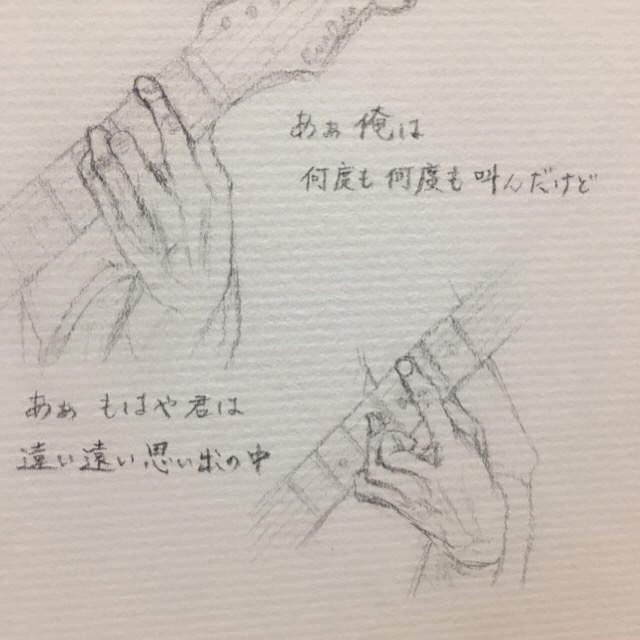 あぁ俺は
何度も何度も叫んだけど
あぁ もはや君は
遠い遠い思い出の中